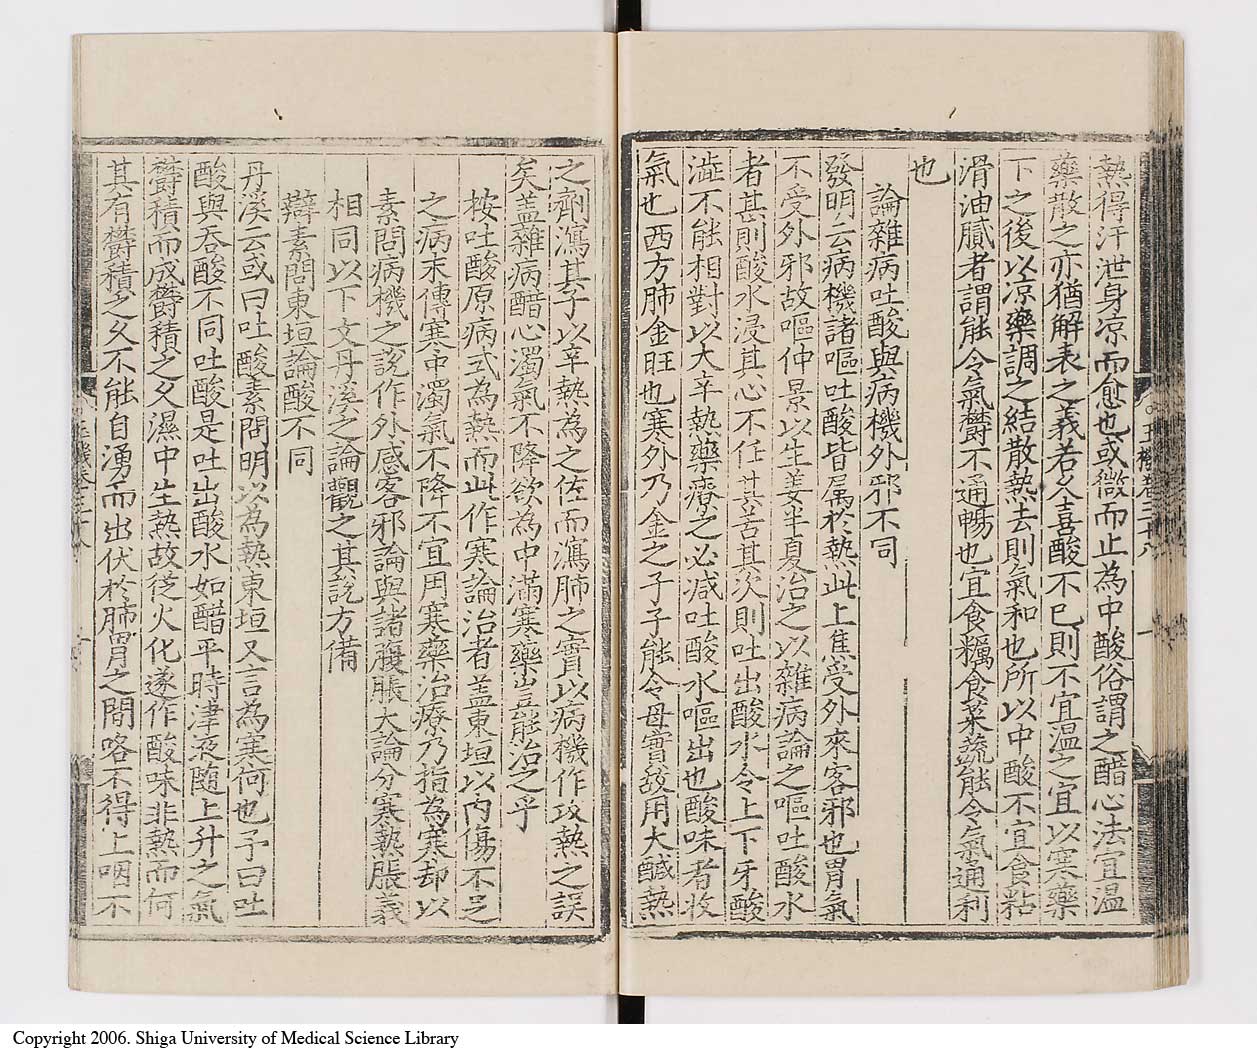 熱得汗泄身凉而愈也或微而止為中酸俗謂之醋心法宜温
藥散之亦猶解表之義若久喜酸不已則不宜温之宜以寒藥
下之後以凉藥調之結散熱去則氣和也所以中酸不宜食粘
滑油膩者謂能令氣欝不通暢也宜食糲食菜蔬能令氣通利
也
論雜病吐酸與病機外邪不同
發明云病機諸嘔吐酸皆属於熱此上焦受外來客邪也胃氣
不受外邪故嘔仲景以生姜半夏治之以雜病論之嘔吐酸水
者甚則酸水浸其心不任其苦其次則吐出酸水令上下牙酸
澁不能相對以大辛熱藥療之必减吐酸水嘔出也酸味者收
氣也西方肺金旺也寒外乃金之子子能令母實故用大醎熱
之劑瀉其子以辛熱為之佐而瀉肺之實以病機作攻熱之誤
矣盖雜病醋心濁氣不降欲為中滿寒藥豈能治之乎
按吐酸原病式為熱而此作寒論治者盖東垣以内傷不足
之病末傳寒中濁氣不降不宜用寒藥治療乃指為寒却以
素問病機之說作外感客邪論與諸腹脹大論分寒熱脹義
相同以下文丹溪之論觀之其說方備
辯素問東垣論酸不同
丹溪云或曰吐酸素問明以為熱東垣又言為寒何也予曰吐
酸與吞酸不同吐酸是吐出酸水如醋平時津液隨上升之氣
欝積而成欝積之久濕中生熱故從火化遂作酸味非熱而何
其有欝積之久不能自湧而出伏於肺胃之間咯不得上咽不
Copyright 2006. Shiga University of Medical Science Library